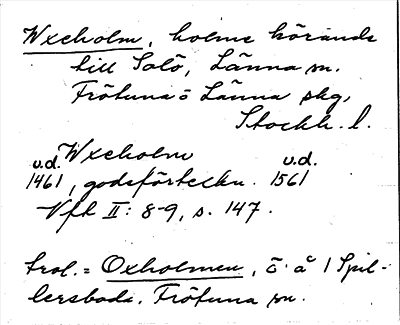 Wxeholm, holme hörande
till Solö, Länna sn.
Frötuna o Länna skg,
Stockh. l.
u.d. Wxeholm u.d.
1461, godsförteckn. 1561
Vfk II: 8-9, s. 147.
trol. = Oxholmen, ö å 1 Spil-
lersboda. Frötuna sn.